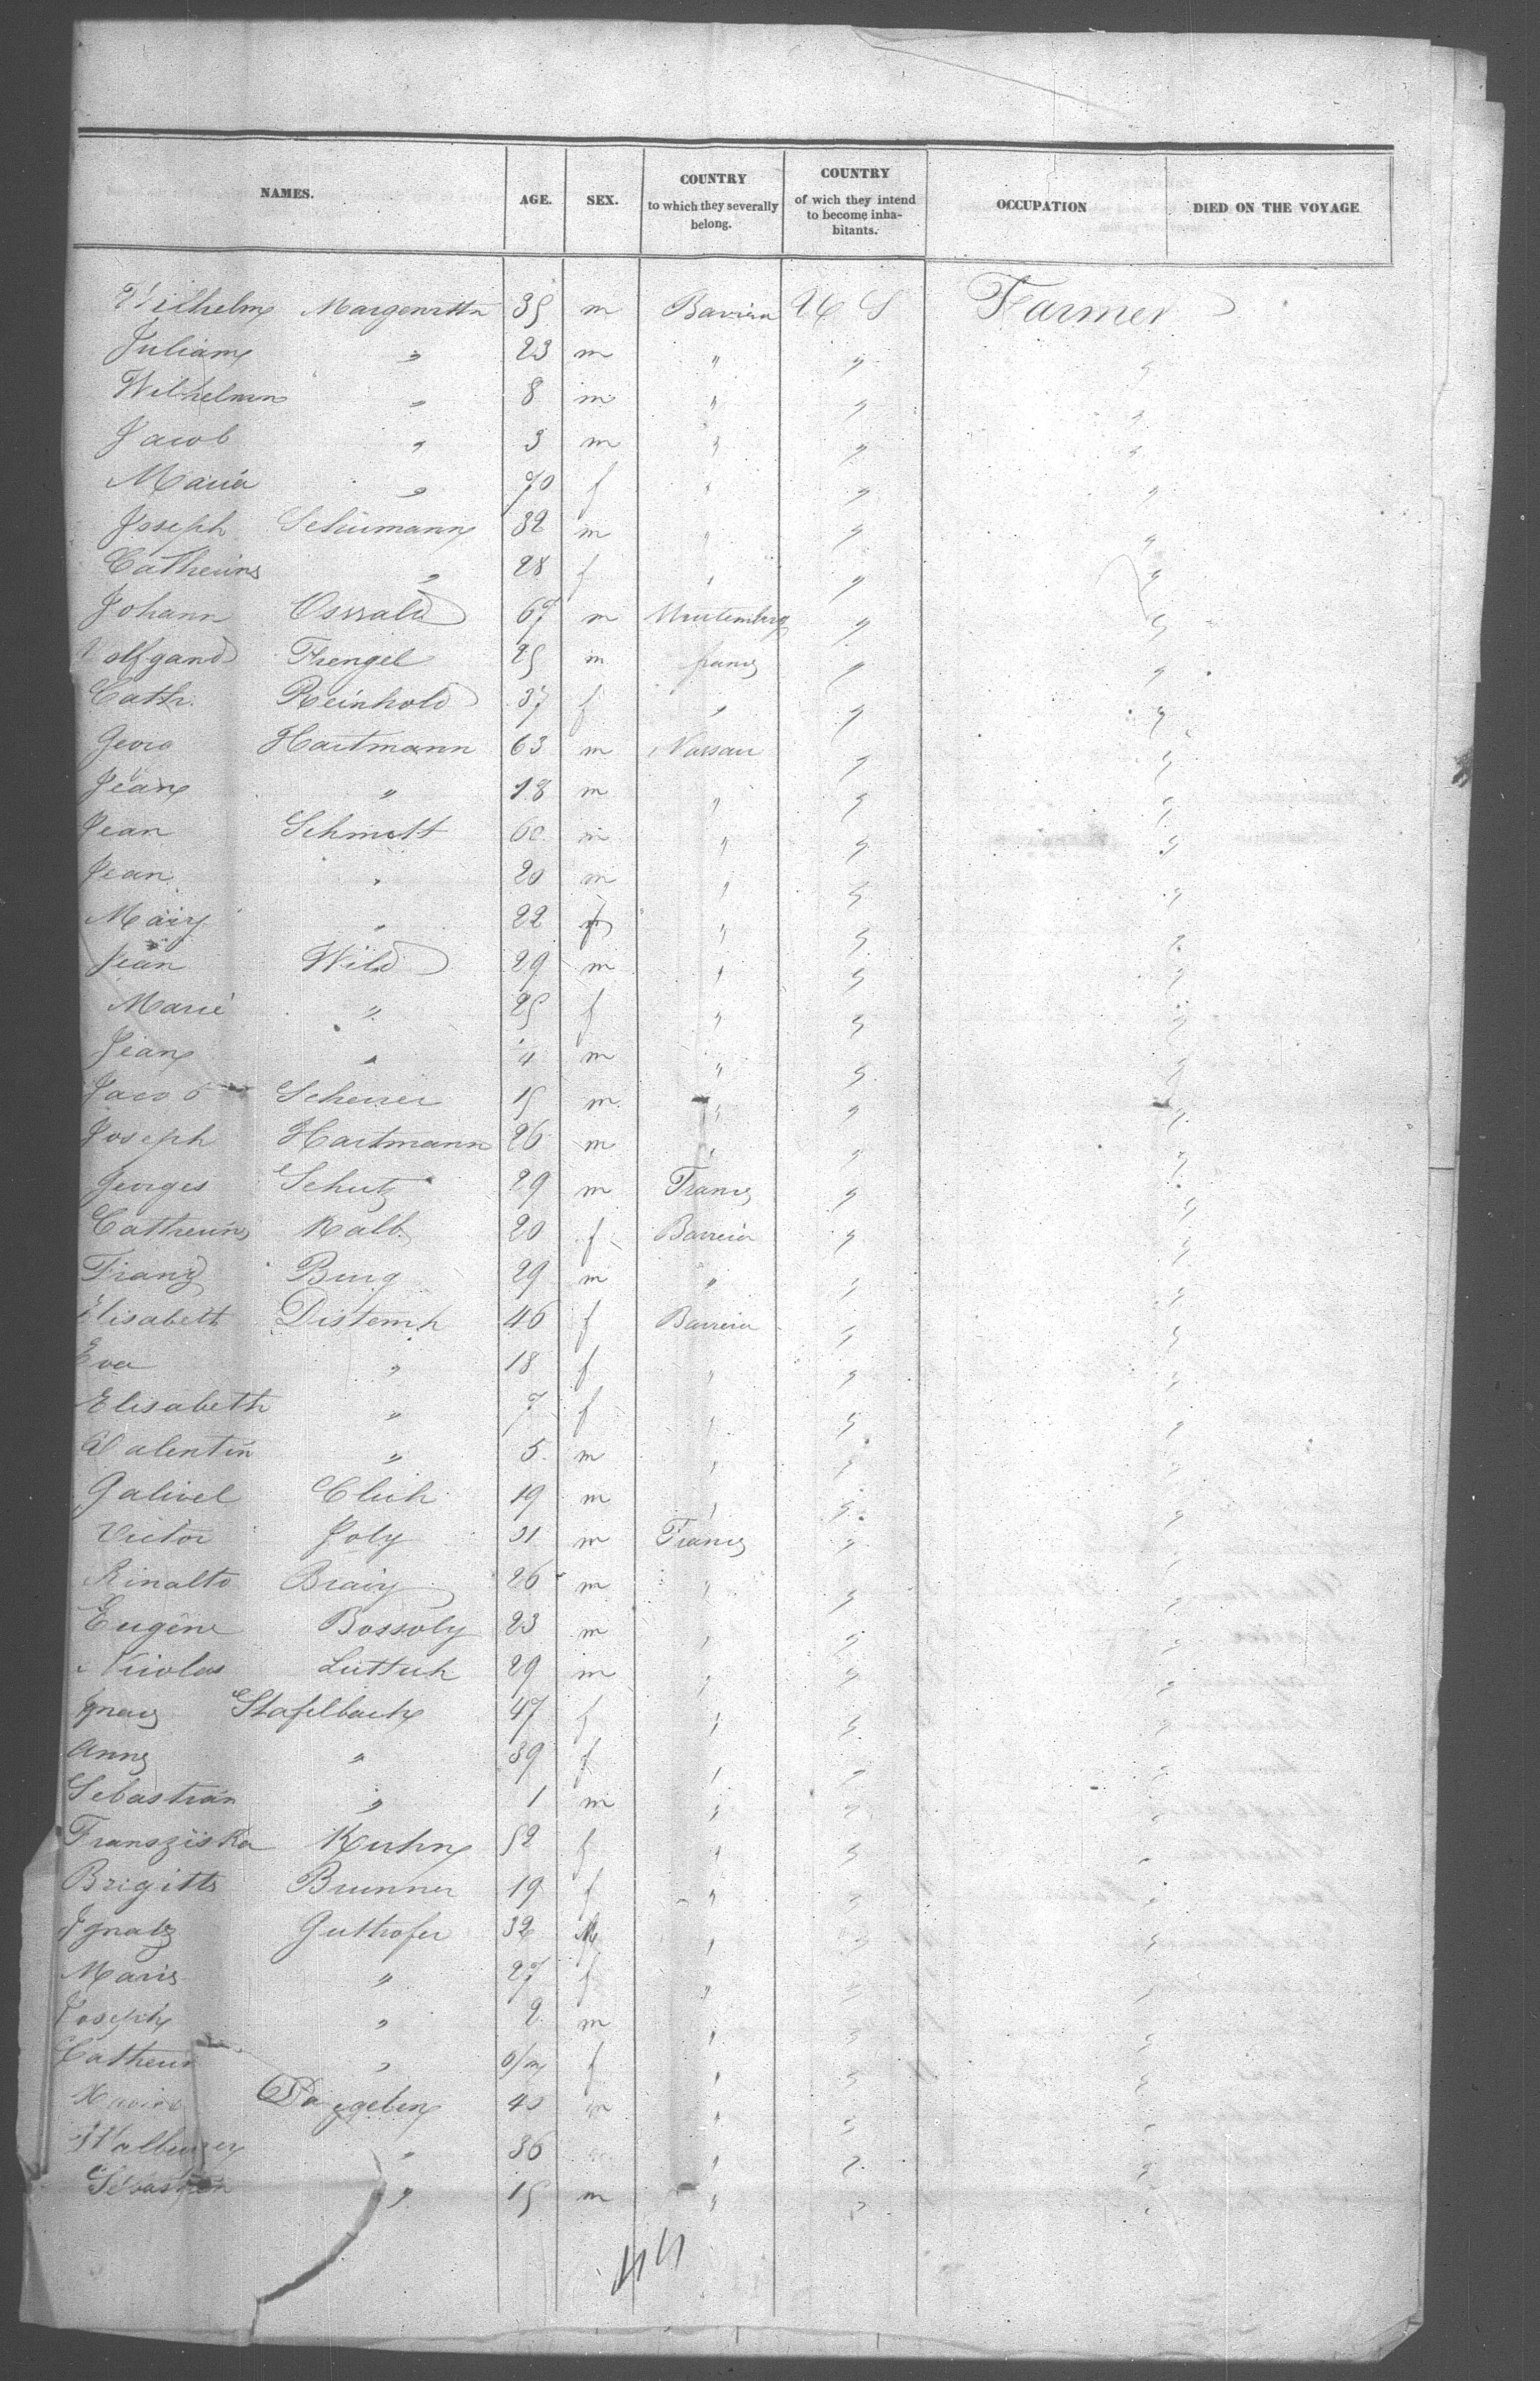 NAMES. AGE. SEX. COUNTRY to which they severally belong. COUNTRY of wich they intend to become inhabitants. OCCUPATION DIED ON THE VOYAGE
Wilhelm 35 m Baviera U S Farmer
Juliam " 23 m " " "
Wilhelmn " 8 m " " "
Jacob " 3 m " " "
Maria " 70 f " " "
Joseph Schumann 32 m " " "
Catherina " 28 f " " "
Johann Osswald 67 m Wurtemberg " "
Wolfgand Frengel 25 m franc " "
Cath. Reinhold 37 f " " "
Georg Hartmann 63 m Nassau " "
Jean " 18 m " " "
Jean Schmitt 60 m " " "
Jean " 20 m " " "
Mary " 22 f " " "
Jean Wild 29 m " " "
Marie " 25 f " " "
Jean " 4 m " " "
Jacob Scherrer 15 m " " "
Joseph Hartmann 26 m " " "
Georges Schutz 29 m France " "
Catherine Kalb 20 f Baviera " "
Franz Burg 29 m " " "
Elisabeth Distemh 46 f Baviera " "
Eva " 18 f " " "
Elisabeth " 7 f " " "
Valentin " 5 m " " "
19 m " " "
Victor Joly 31 m France " "
Rinalto 26 m " " "
Eugène Bossoly 23 m " " "
Nicolas 29 m " " "
Ignaz Stafelbach 47 f " " "
Anna " 39 f " " "
Sebastian " 1 m " " "
Fransziska Kuhn 52 f " " "
Brigitte Brunner 19 f " " "
Ignatz Guthofer 32 M " " "
Marie " 27 f " " "
Joseph " 2 m " " "
Catherin " f " " "
40 m " " "
" 36 " " "
Sebastien " 15 m " " "
44